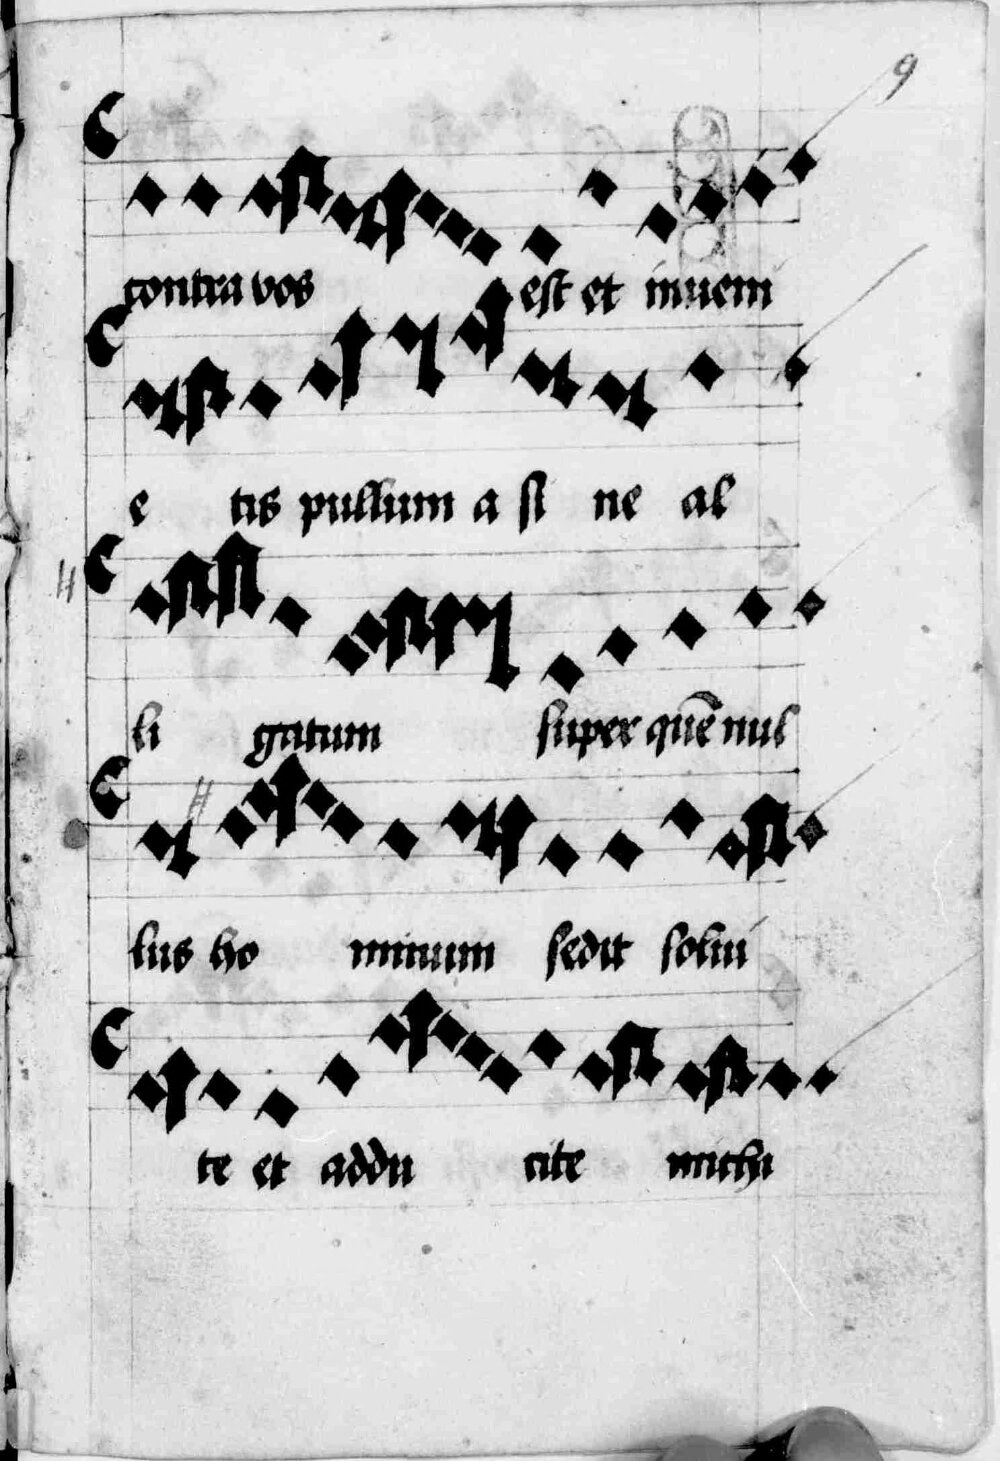 9
contra vos est et inueni
e tis pullum a si ne al
li gatum super quē nul
lus ho minum sedit solui
te et addu cite michi